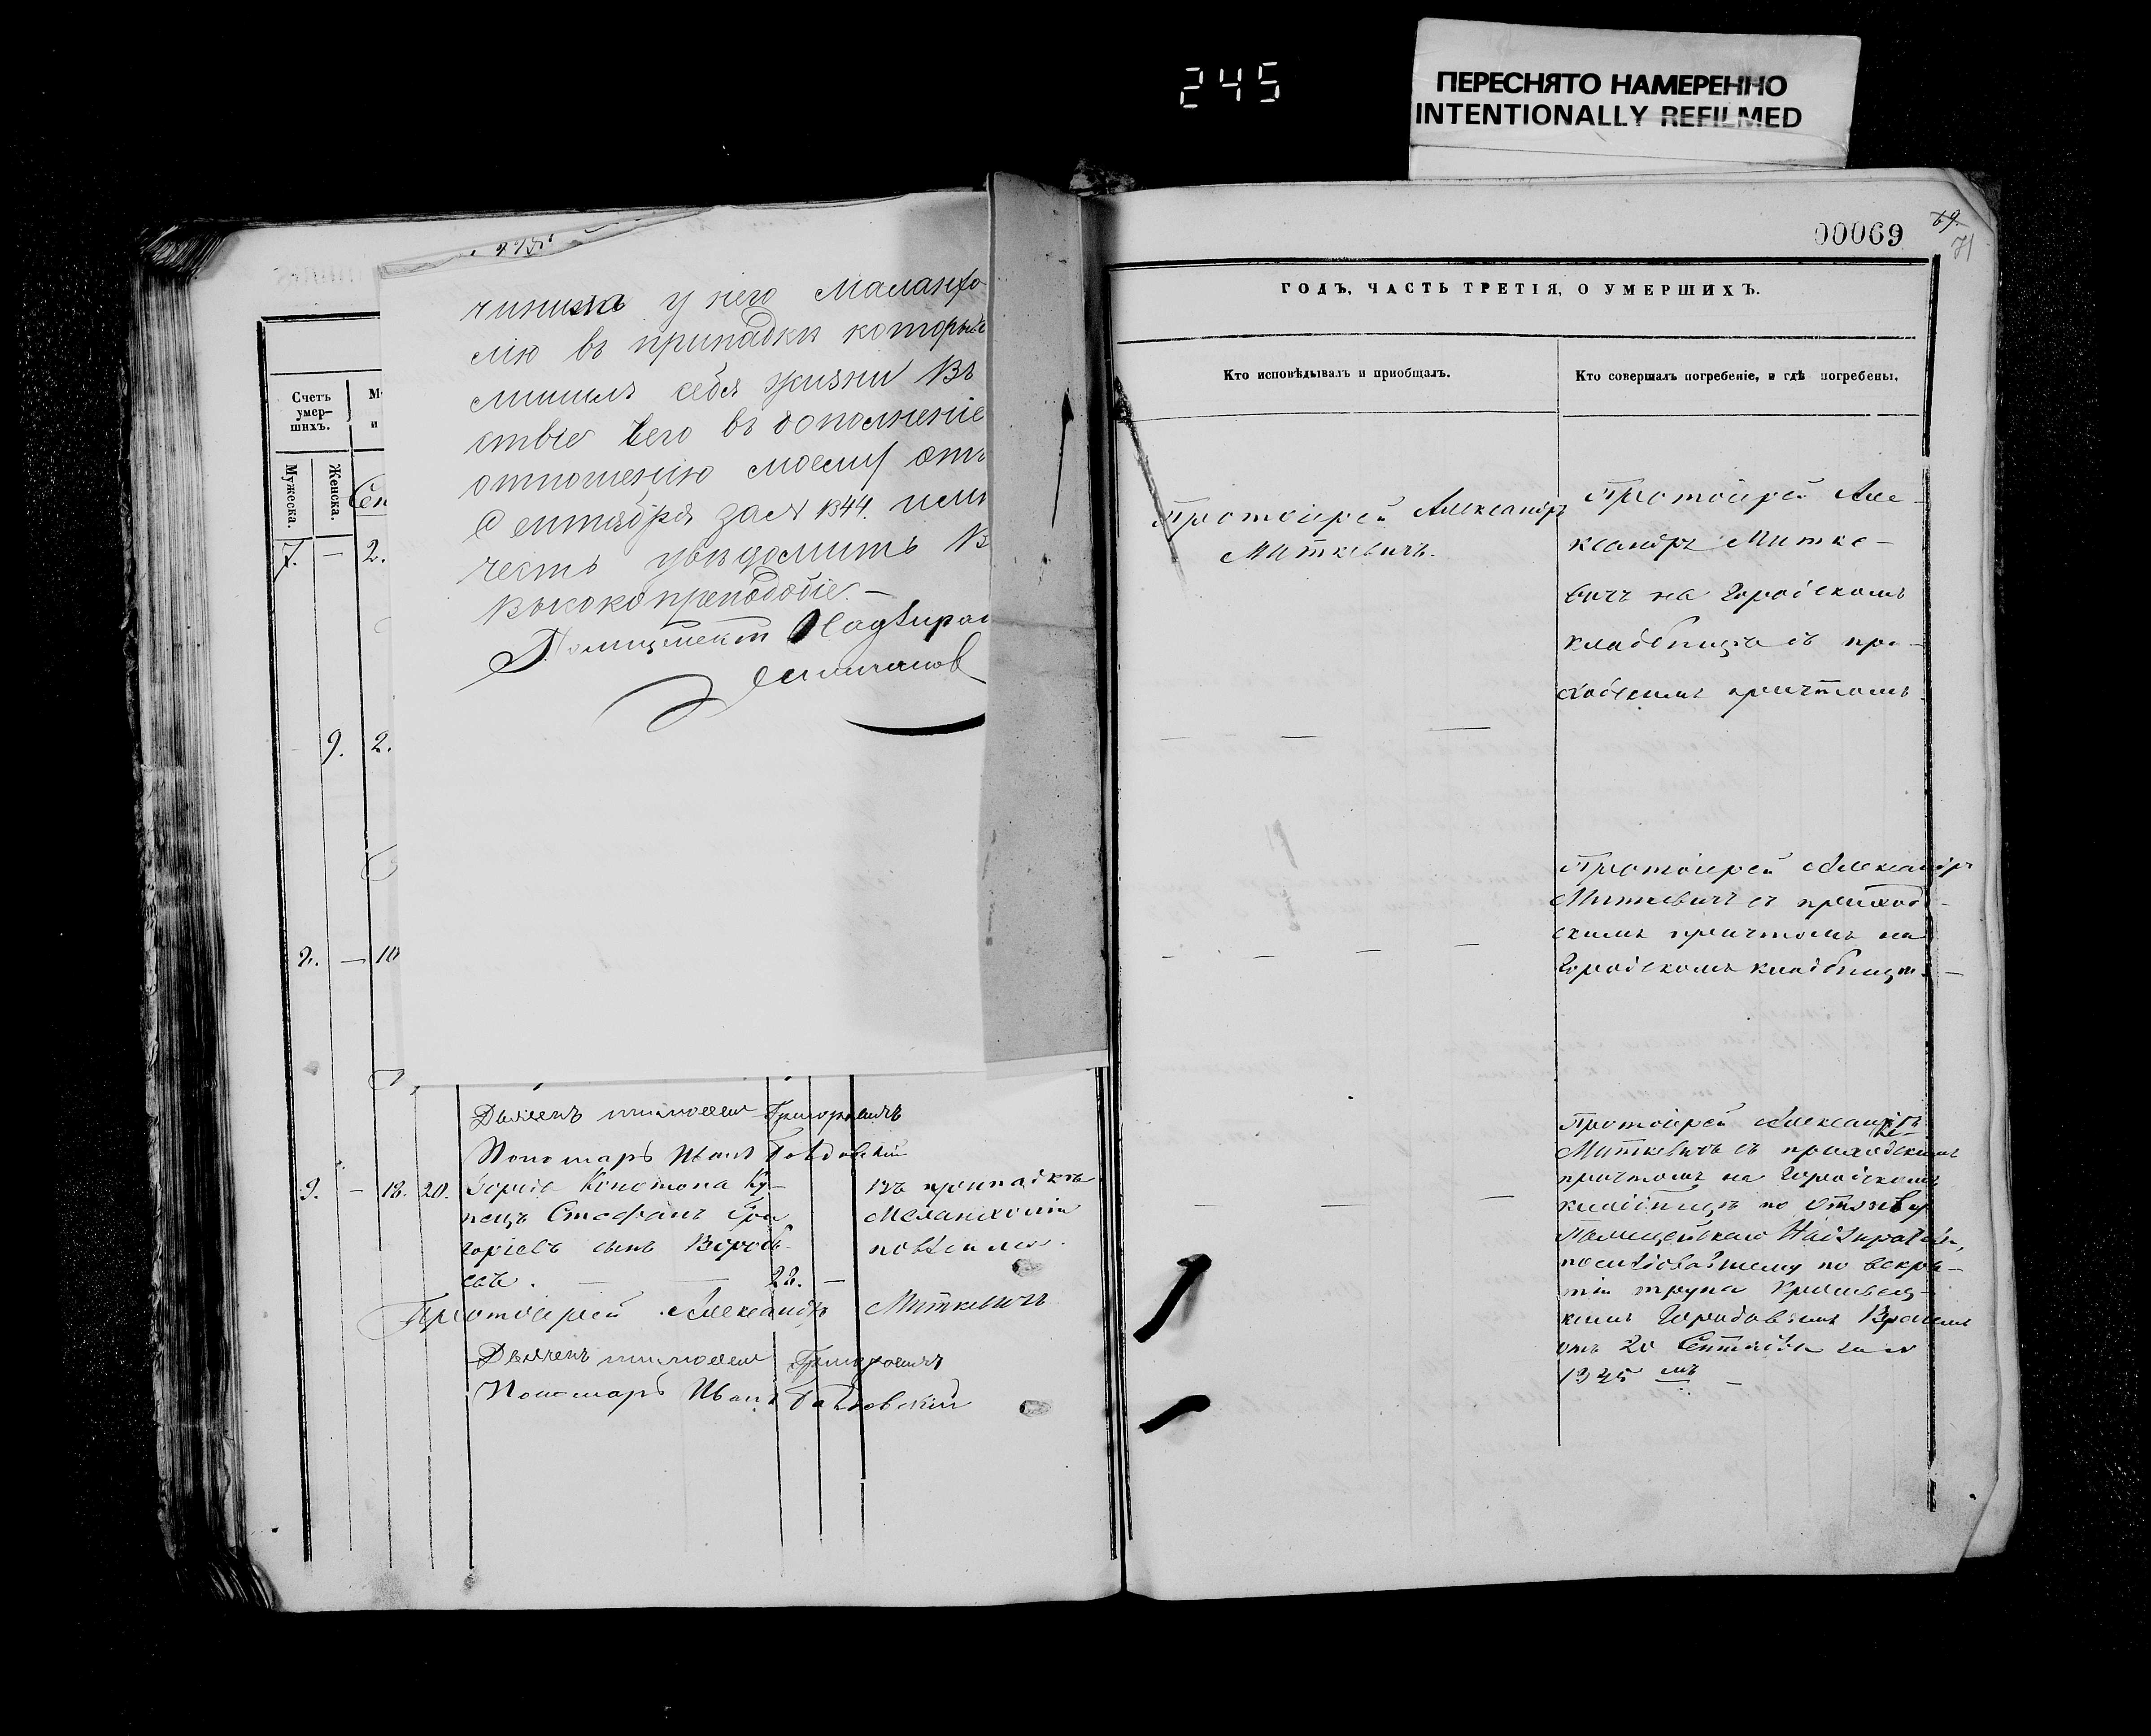 245
ПЕРЕСНЯТО НАМЕРЕННО
INTENTIONALLY REFILMED
чинила у него Маланхо
лію въ припадки которые
лишилъ себя жизни Въ
ствіе чего въ дополненіе
отношенію моему отъ
Сентября за № 1344. имѣ
честь увѣдомить В
Высокопреподобіе. —
Счетъ
умер-
шихъ.
М
и
Мужеска.
Женска.
Сен
7. — 2.
9. 2.
2. — 10
Дьячекъ Григоровичъ
Пономарь Иванъ
9. — 18. 20. Города Конотопа Ку-
пецъ Стефанъ Гри
горіевъ сынъ Вороб-
евъ. — — 22. —
Въ припадкѣ
Меланхоліи
повѣсился.
Протоіерей Александръ Миткевичъ
Дьячекъ Григоровичъ
Пономарь Иванъ
00069
69.
71
ГОДЪ, ЧАСТЬ ТРЕТІЯ, О УМЕРШИХЪ.
Кто исповѣдывалъ и пріобщалъ.
Кто совершалъ погребеніе, и гдѣ погребены.
Протоіерей Александръ
Миткевичъ.
Протоіерей Але-
ксандръ Митке-
вичъ на Городскомъ
кладбищѣ съ при-
ходскимъ причтомъ
— — —
Протоіерей Александръ
Миткевичъ съ приход-
скимъ причтомъ на
Городскомъ кладбищѣ. —
— — —
Протоіерей Александръ
Миткевичъ съ приходскимъ
причтомъ на Городскомъ
кладбищѣ по отзыву
Полицейскаго Надзирателя,
послѣдовавшему по вскры-
тіи трупа
Городовымъ Врачемъ
отъ 20 Сентября за №
1345 мъ —
— — —